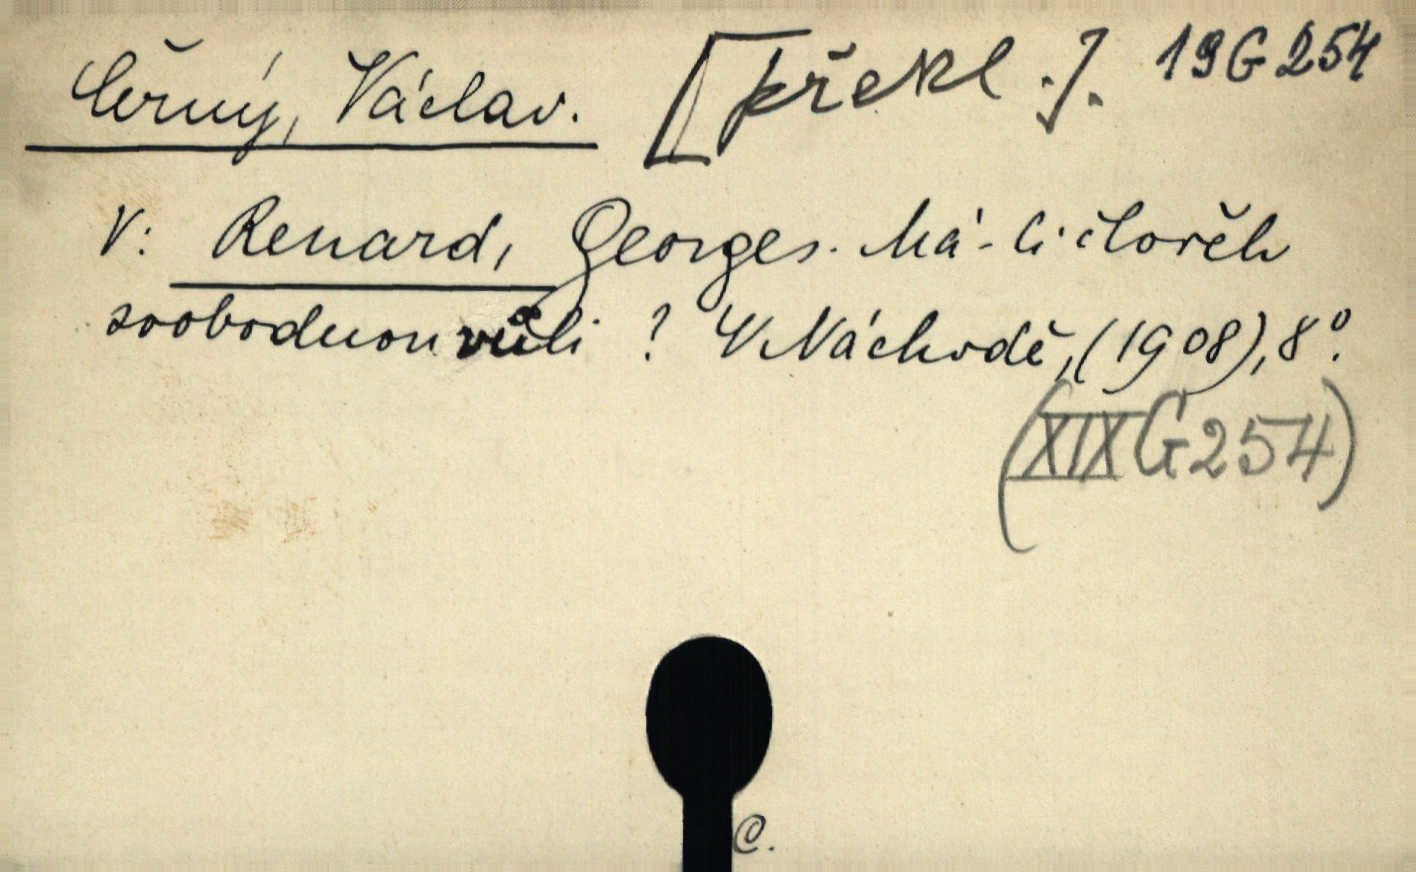 Černý, Václav. [překl.]. 19G254
V: Renard, Georges. Má-li člověk
svobodnou vůli? V Náchodě, (1908), 8°.
(XIXG254)
C.